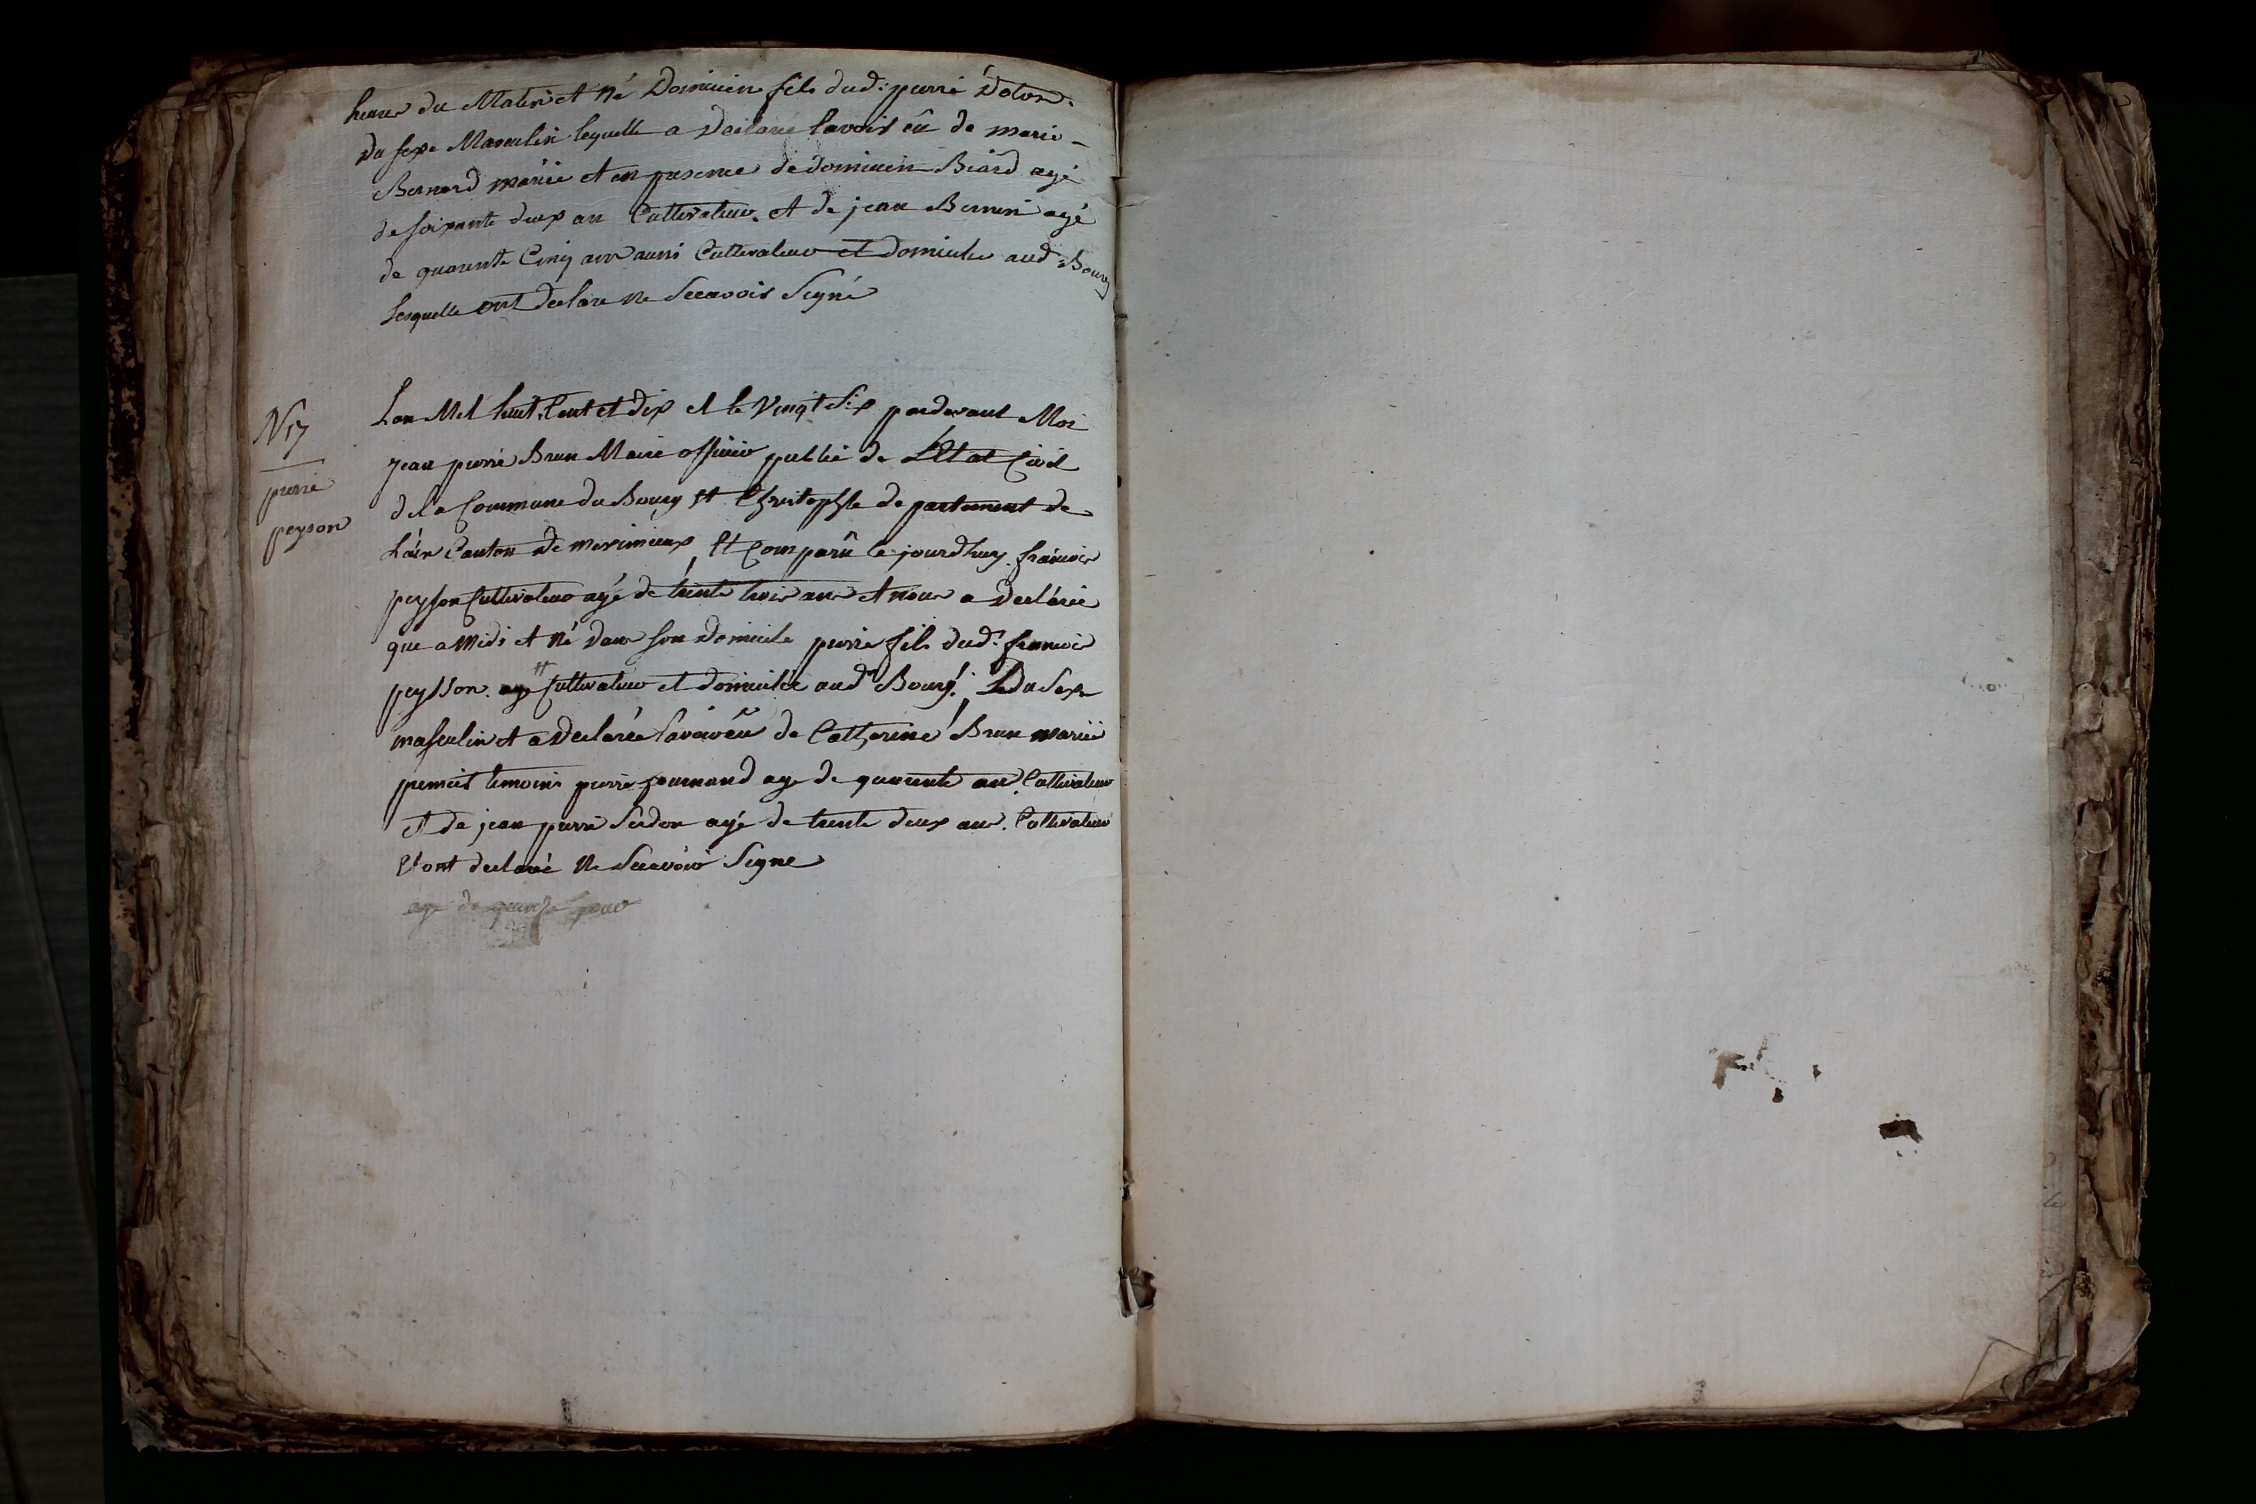 heure du Matin et né Dominien fils dud: pierre Dolon.
du sexe Masculin lequelle a Declarée lavois eû de marie
Bernard mariée et en presence de dominien Biard agé
de soixante deux an Cultivateur. et de jean Bernin agé
de quarente Cinq ans aussi Cultivateur et Domicilié aud Bourg
lesquelle ont declare ne Scavoir Signé
N 17
pierre
peyson
Lan Mil huit Cent et dix et le Vingt Six pardevant Moi
jean pierre Brun Maire officier public de LEtat Civil
de la Commune du Bourg St Christophle departement de
Lain Canton de meximieux Et Comparû ce jourdhuy francois
peyson Cultivateur agé de trente trois ans et nous a declarée
que a Midi et né dans son domicile pierre fils dud: francois
peysson. age Cultivateur et domicilié aud Bourg. Du Sexe
masculin et a declarée lavoir êu de Catherine Brun mariée
temoins pierre journand age de quarente ans. Cultivateur
et de jean pierre Serdon agé de trente deux ans. Cultivateur
Et ont declaré ne Scavoir Signe
age de